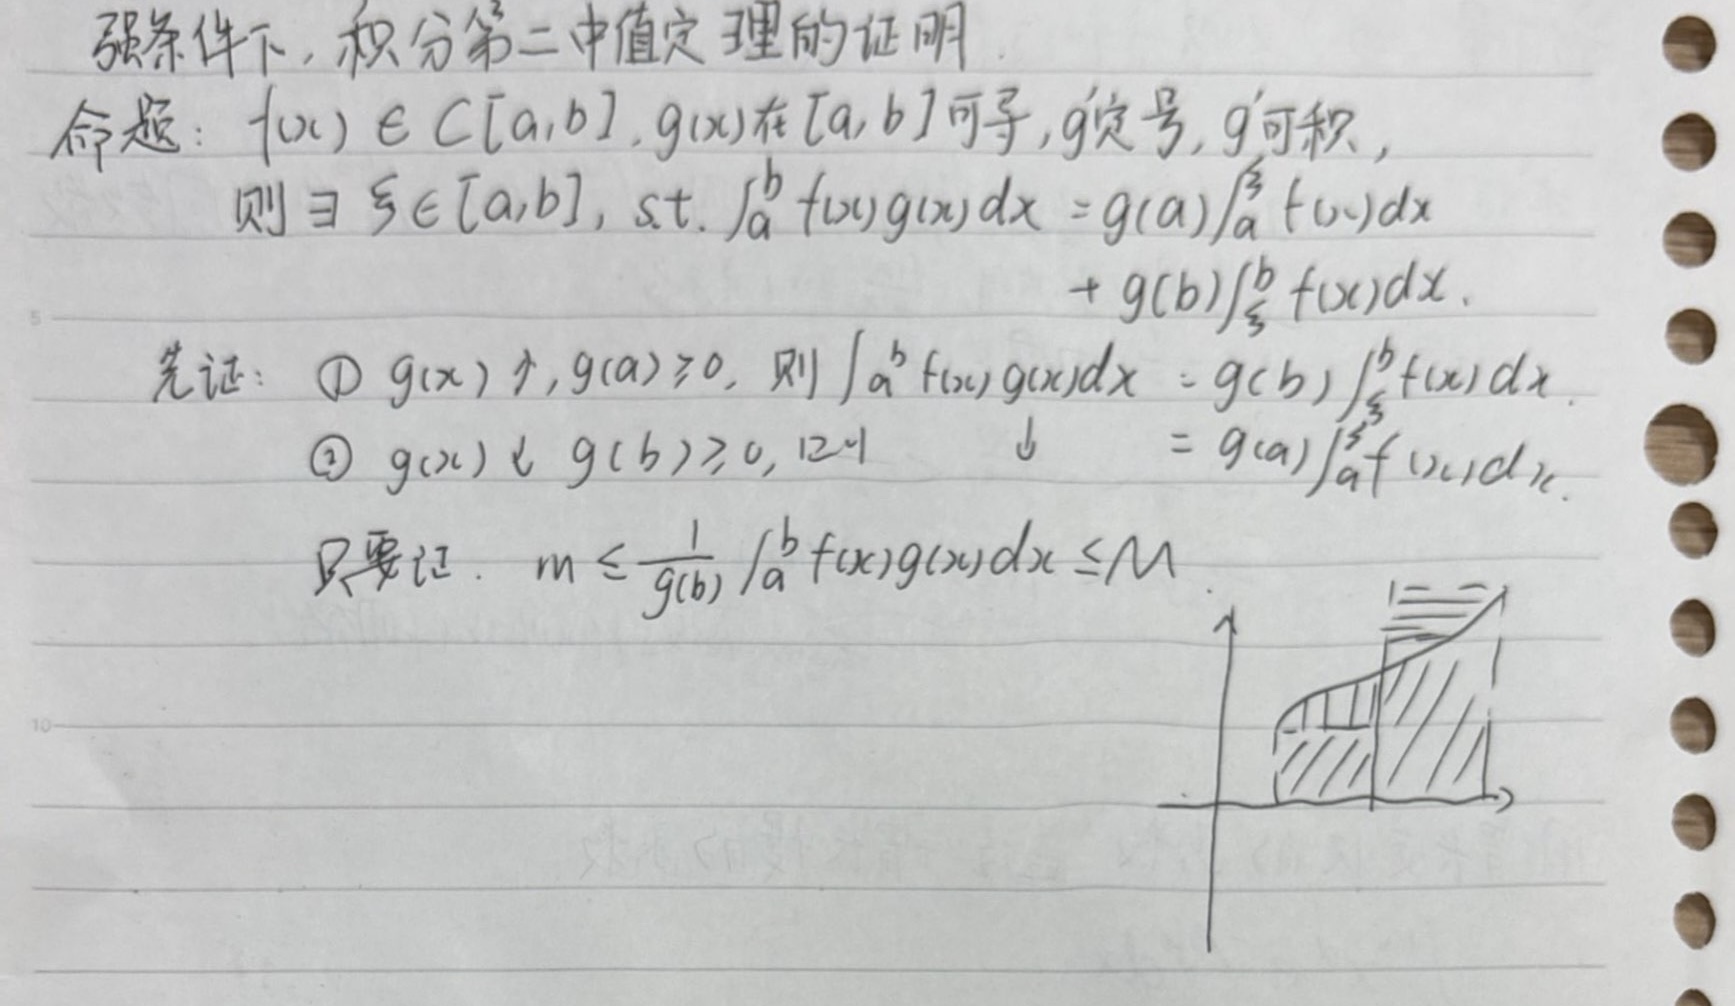 强条件下,积分第二中值定理的证明.
命题: f(x) ∈ C[a,b], g(x)在[a,b]可导, g'定号, g'可积,
则∃ξ∈[a,b], s.t. ∫_a^b f(x)g(x)dx = g(a)∫_a^ξ f(x)dx
+ g(b)∫_ξ^b f(x)dx.
先证: ① g(x)↑, g(a)≥0, 则 ∫_a^b f(x)g(x)dx = g(b)∫_ξ^b f(x)dx.
② g(x)↓ g(b)≥0, 则 ↓ = g(a)∫_a^ξ f(x)dx.
只要证. m ≤ \frac{1}{g(b)} ∫_a^b f(x)g(x)dx ≤ M
5
10